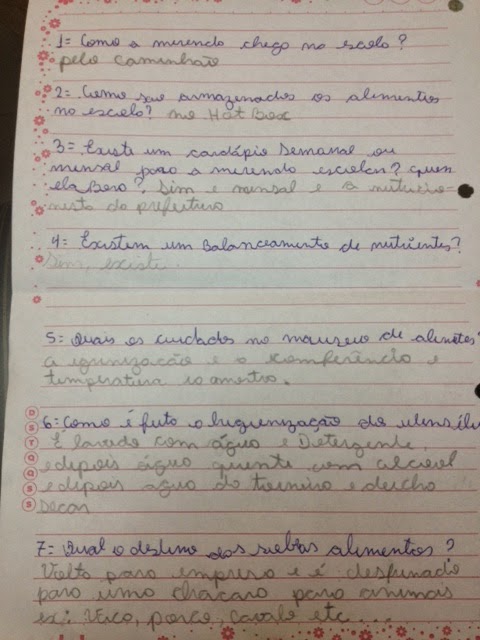 1= Como a merenda chega na escola?
pelo caminhão
2= Como sao armazenados os alimentos
na escola? no Hot Box
3= Existe um cardápio semanal ou
mensal para a merenda escolar? quem
elabora? Sim e mensal e a nutricio-
nista da prefeitura
4= Existem um Balanceamento de nutrientes?
Sim, existe.
5= Quais os cuidados no manuseio de alimetos?
A igunização e a
temperatura
6= Como é feita a higienização do utensílu
É lavado com água e Detergente,
edepois água quente com alcool
edepois agua da torneira e deicha
Secar
7= Qual o destino das sobras alimentos?
Volta para empresa e é
para uma chacara para animais
ex: Vaca, porco, cavalo etc...
DSTQQSS